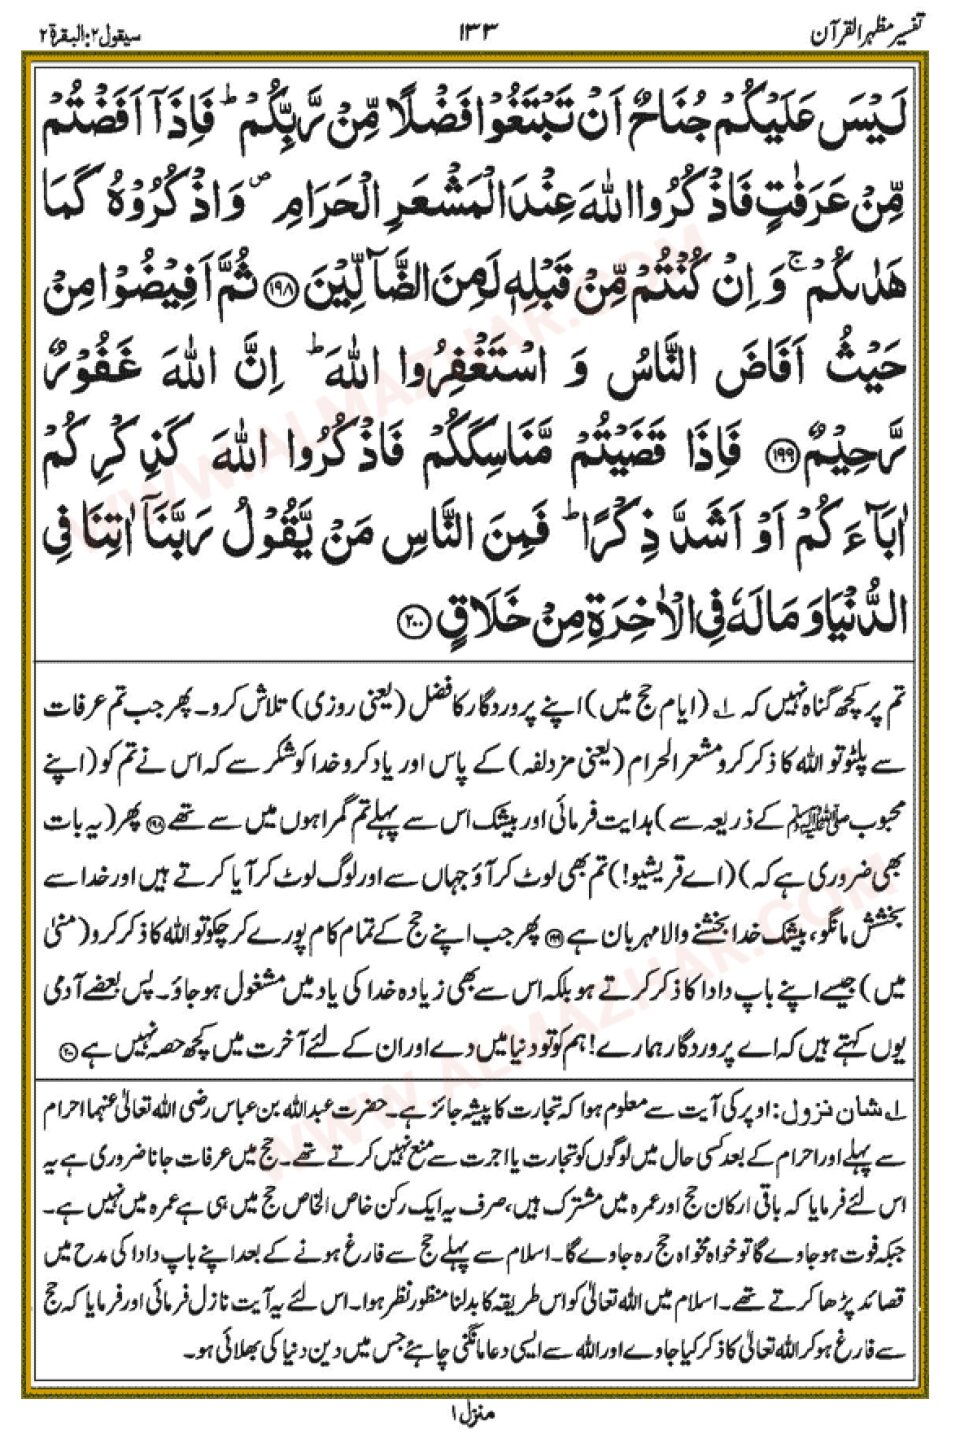 تفسیر مظہر القرآن
۱۳۳
سیقول ۲: البقرة ۲
لَيۡسَ عَلَيۡكُمۡ جُنَاحٌ اَنۡ تَبۡتَغُوۡا فَضۡلًا مِّنۡ رَّبِّكُمۡ ؕ فَاِذَآ اَفَضۡتُمۡ
مِّنۡ عَرَفٰتٍ فَاذۡكُرُوا اللّٰهَ عِنۡدَ الۡمَشۡعَرِ الۡحَـرَامِ ۖ وَاذۡكُرُوۡهُ كَمَا
هَدٰٮكُمۡ ۚ وَاِنۡ كُنۡتُمۡ مِّنۡ قَبۡلِهٖ لَمِنَ الضَّآلِّيۡنَ ﴿۱۹۸﴾ ثُمَّ اَفِيۡضُوۡا مِنۡ
حَيۡثُ اَفَاضَ النَّاسُ وَ اسۡتَغۡفِرُوا اللّٰهَ ؕ اِنَّ اللّٰهَ غَفُوۡرٌ
رَّحِيۡمٌ ﴿۱۹۹﴾ فَاِذَا قَضَيۡتُمۡ مَّنَاسِكَكُمۡ فَاذۡكُرُوا اللّٰهَ كَذِكۡرِكُمۡ
اٰبَآءَكُمۡ اَوۡ اَشَدَّ ذِكۡرًا ؕ فَمِنَ النَّاسِ مَنۡ يَّقُوۡلُ رَبَّنَآ اٰتِنَا فِى
الدُّنۡيَا وَمَا لَهٗ فِى الۡاٰخِرَةِ مِنۡ خَلَاقٍ ﴿۲۰۰﴾
تم پر کچھ گناہ نہیں کہ ۱؎ (ایام حج میں) اپنے پروردگار کا فضل (یعنی روزی) تلاش کرو۔ پھر جب تم عرفات
سے پلٹو تو اللہ کا ذکر کرو مشعر الحرام (یعنی مزدلفہ) کے پاس اور یاد کرو خدا کو شکر سے کہ اس نے تم کو (اپنے
محبوب ﷺ کے ذریعہ سے) ہدایت فرمائی اور بیشک اس سے پہلے تم گمراہوں میں سے تھے ﴿۱۹۸﴾ پھر (یہ بات
بھی ضروری ہے کہ) (اے قریشیو!) تم بھی لوٹ کر آؤ جہاں سے اور لوگ لوٹ کر آیا کرتے ہیں اور خدا سے
بخشش مانگو، بیشک خدا بخشنے والا مہربان ہے ﴿۱۹۹﴾ پھر جب اپنے حج کے تمام کام پورے کر چکو تو اللہ کا ذکر کرو (منیٰ
میں) جیسے اپنے باپ دادا کا ذکر کرتے ہو بلکہ اس سے بھی زیادہ خدا کی یاد میں مشغول ہو جاؤ۔ پس بعضے آدمی
یوں کہتے ہیں کہ اے پروردگار ہمارے! ہم کو تو دنیا میں دے اور ان کے لئے آخرت میں کچھ حصہ نہیں ہے ﴿۲۰۰﴾
۱؎ شان نزول: اوپر کی آیت سے معلوم ہوا کہ تجارت کا پیشہ جائز ہے۔ حضرت عبداللہ بن عباس رضی اللہ تعالیٰ عنہما احرام
سے پہلے اور احرام کے بعد کسی حال میں لوگوں کو تجارت یا اجرت سے منع نہیں کرتے تھے۔ حج میں عرفات جانا ضروری ہے یہ
اس لئے فرمایا کہ باقی ارکان حج اور عمرہ میں مشترک ہیں، صرف یہ ایک رکن خاص الخاص حج میں ہی ہے عمرہ میں نہیں ہے۔
جبکہ فوت ہو جاوے گا تو خواہ مخواہ حج رہ جاوے گا۔ اسلام سے پہلے حج سے فارغ ہونے کے بعد اپنے باپ دادا کی مدح میں
قصائد پڑھا کرتے تھے۔ اسلام میں اللہ تعالیٰ کو اس طریقہ کا بدلنا منظور نظر ہوا۔ اس لئے یہ آیت نازل فرمائی اور فرمایا کہ حج
سے فارغ ہو کر اللہ تعالیٰ کا ذکر کیا جاوے اور اللہ سے ایسی دعا مانگنی چاہئے جس میں دین دنیا کی بھلائی ہو۔
منزل ۱
WWW.ALMAZHAR.COM
WWW.ALMAZHAR.COM